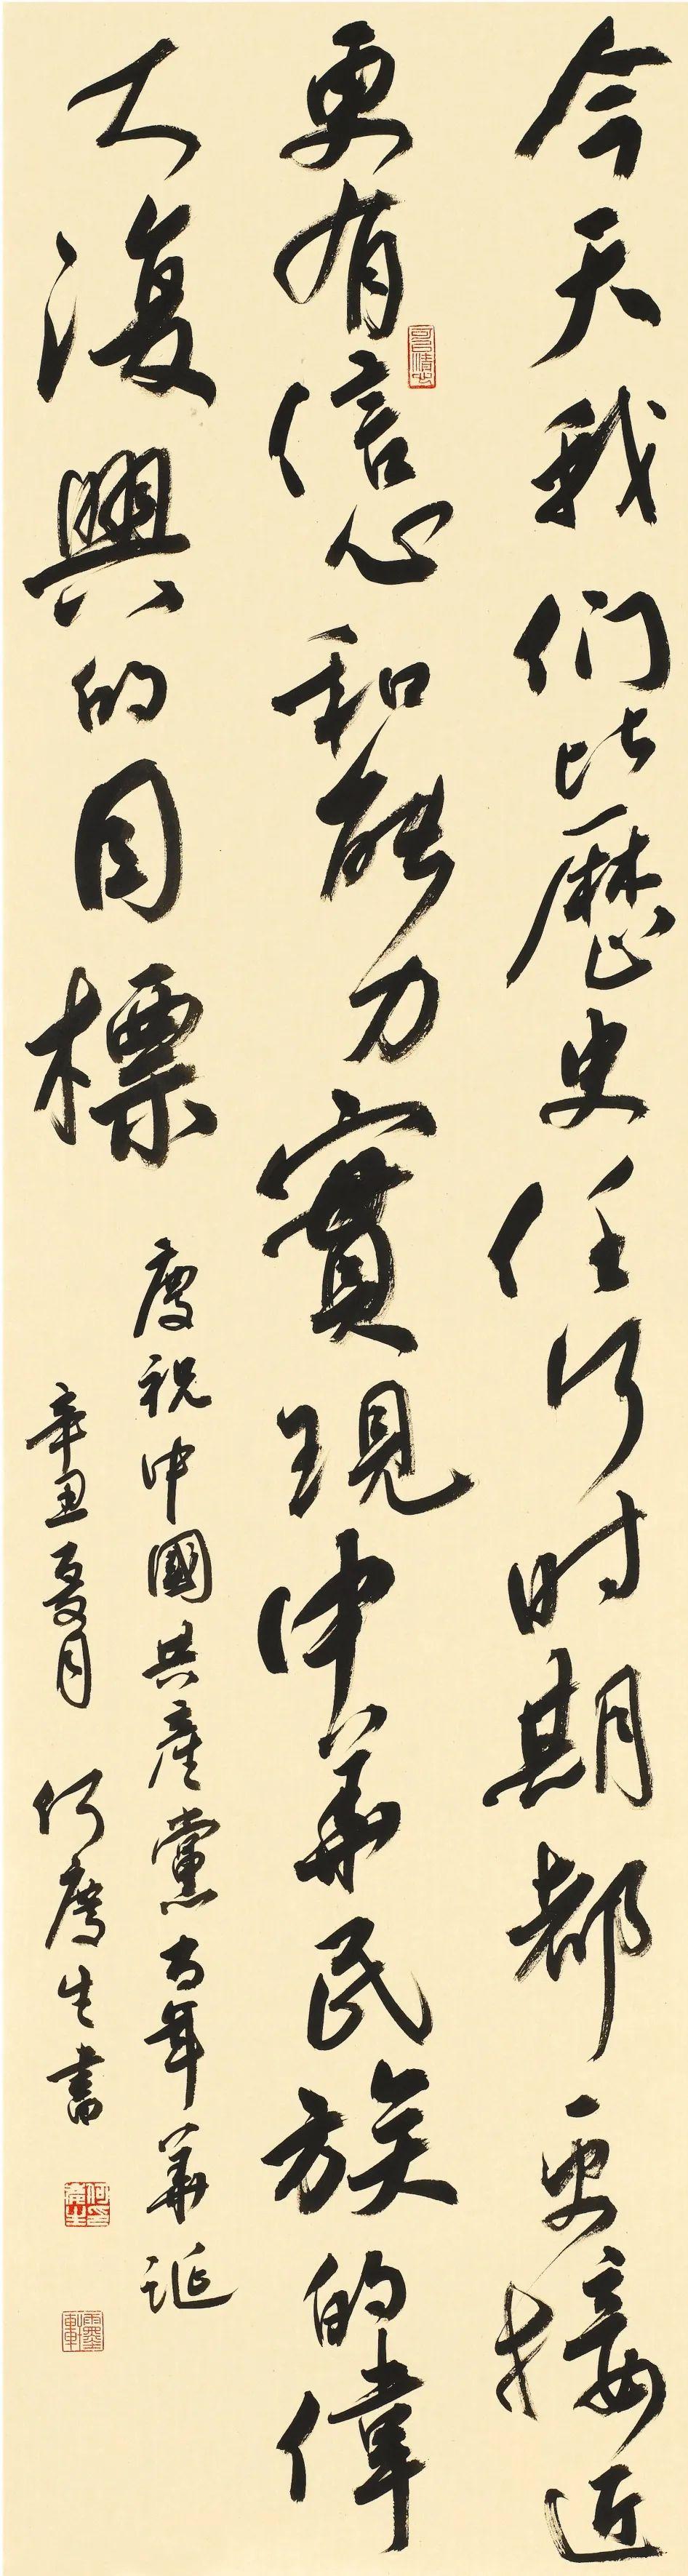 今天我们比歷史任何时期都更接近
更有信心和能力實現中華民族的偉
大復興的目標
慶祝中國共產黨百年華誕
辛丑夏月 何慶生書